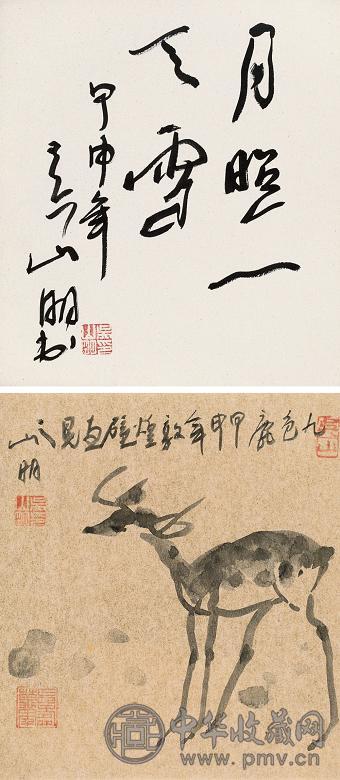 月照一
天雪
甲申年
吴山明书
九色鹿甲申年敦煌壁画见
之山明
中华收藏网
www.pmv.cn